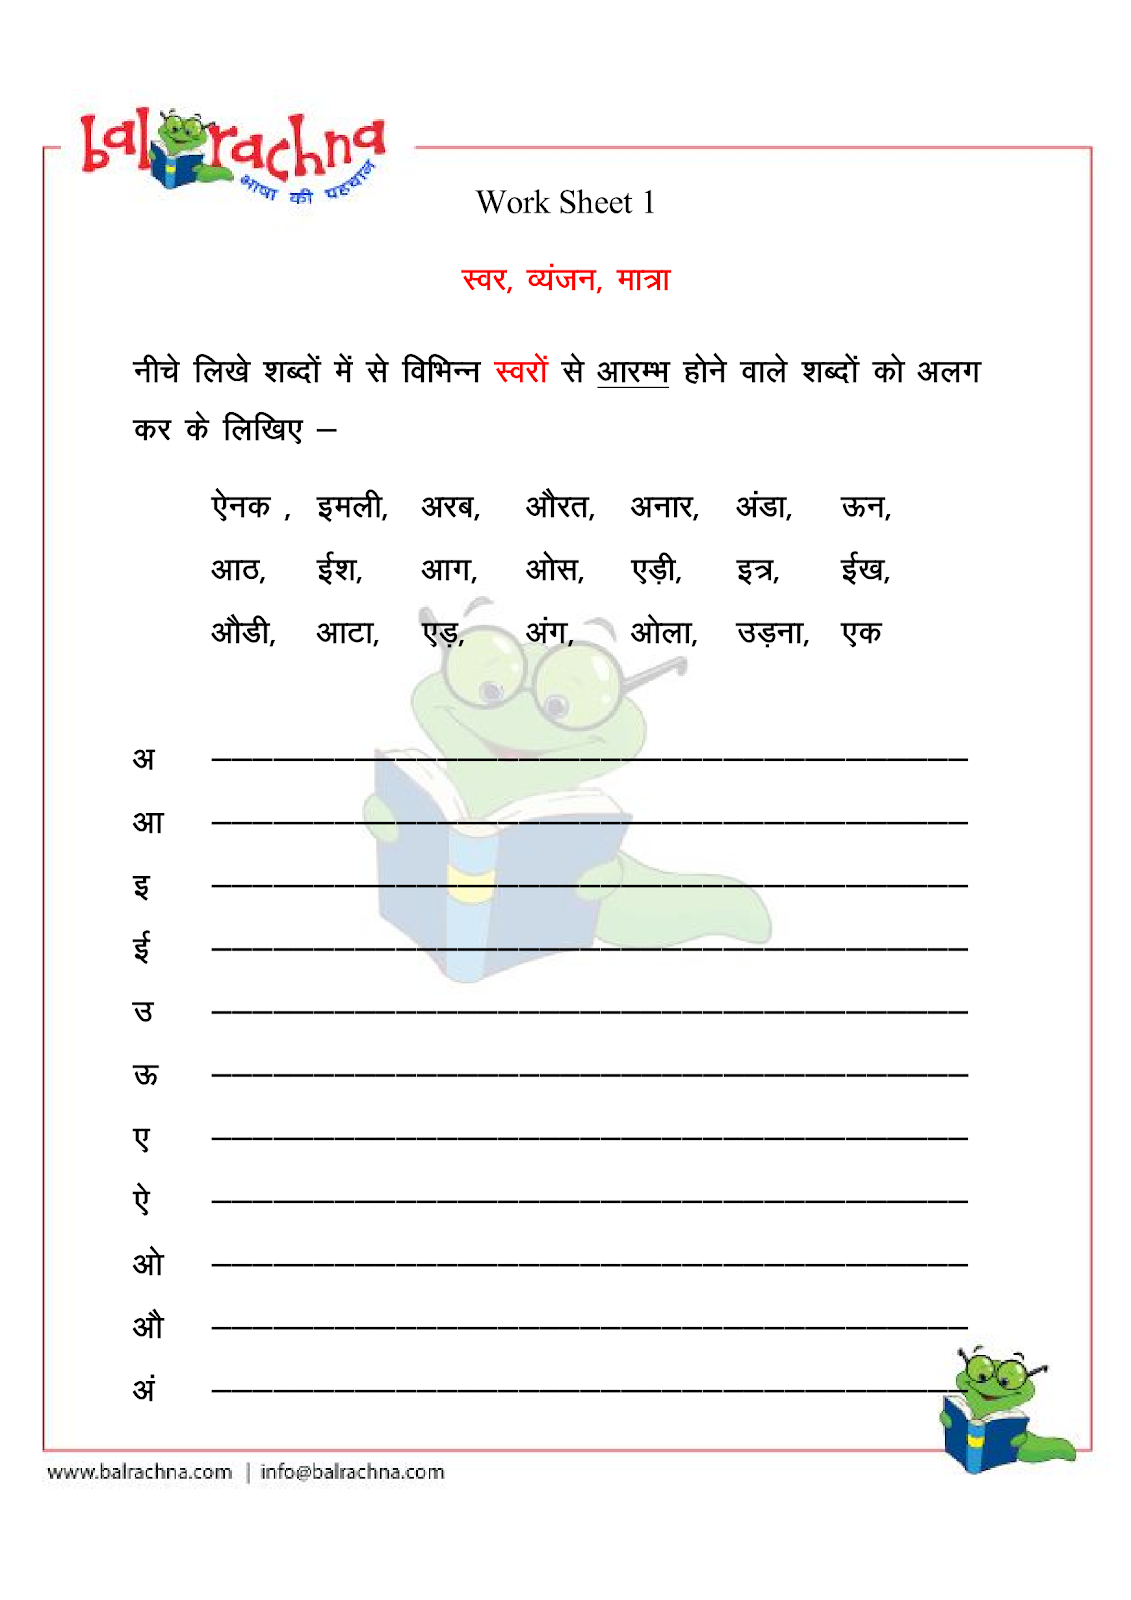 bal rachna
भाषा की पहचान
Work Sheet 1
स्वर, व्यंजन, मात्रा
नीचे लिखे शब्दों में से विभिन्न स्वरों से आरम्भ होने वाले शब्दों को अलग
कर के लिखिए –
ऐनक , इमली, अरब, औरत, अनार, अंडा, ऊन,
आठ, ईश, आग, ओस, एड़ी, इत्र, ईख,
औडी, आटा, एड़, अंग, ओला, उड़ना, एक
अ
आ
इ
ई
उ
ऊ
ए
ऐ
ओ
औ
अं
www.balrachna.com | info@balrachna.com